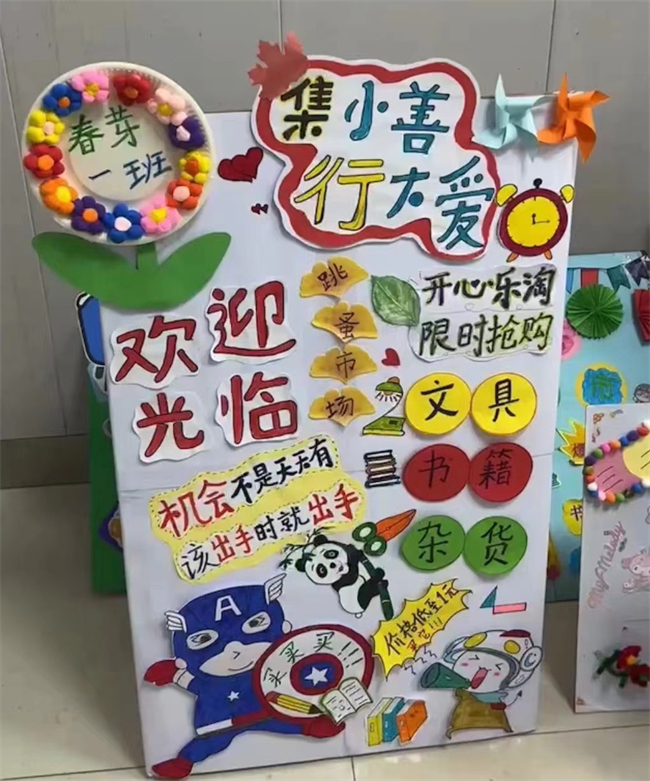 春芽
一班
集小善
行大爱
欢迎
光临
跳
蚤
市
场
开心乐淘
限时抢购
文具
书籍
杂货
机会不是天天有
该出手时就出手
A
买买买!!!
价格低至1元
My Melody